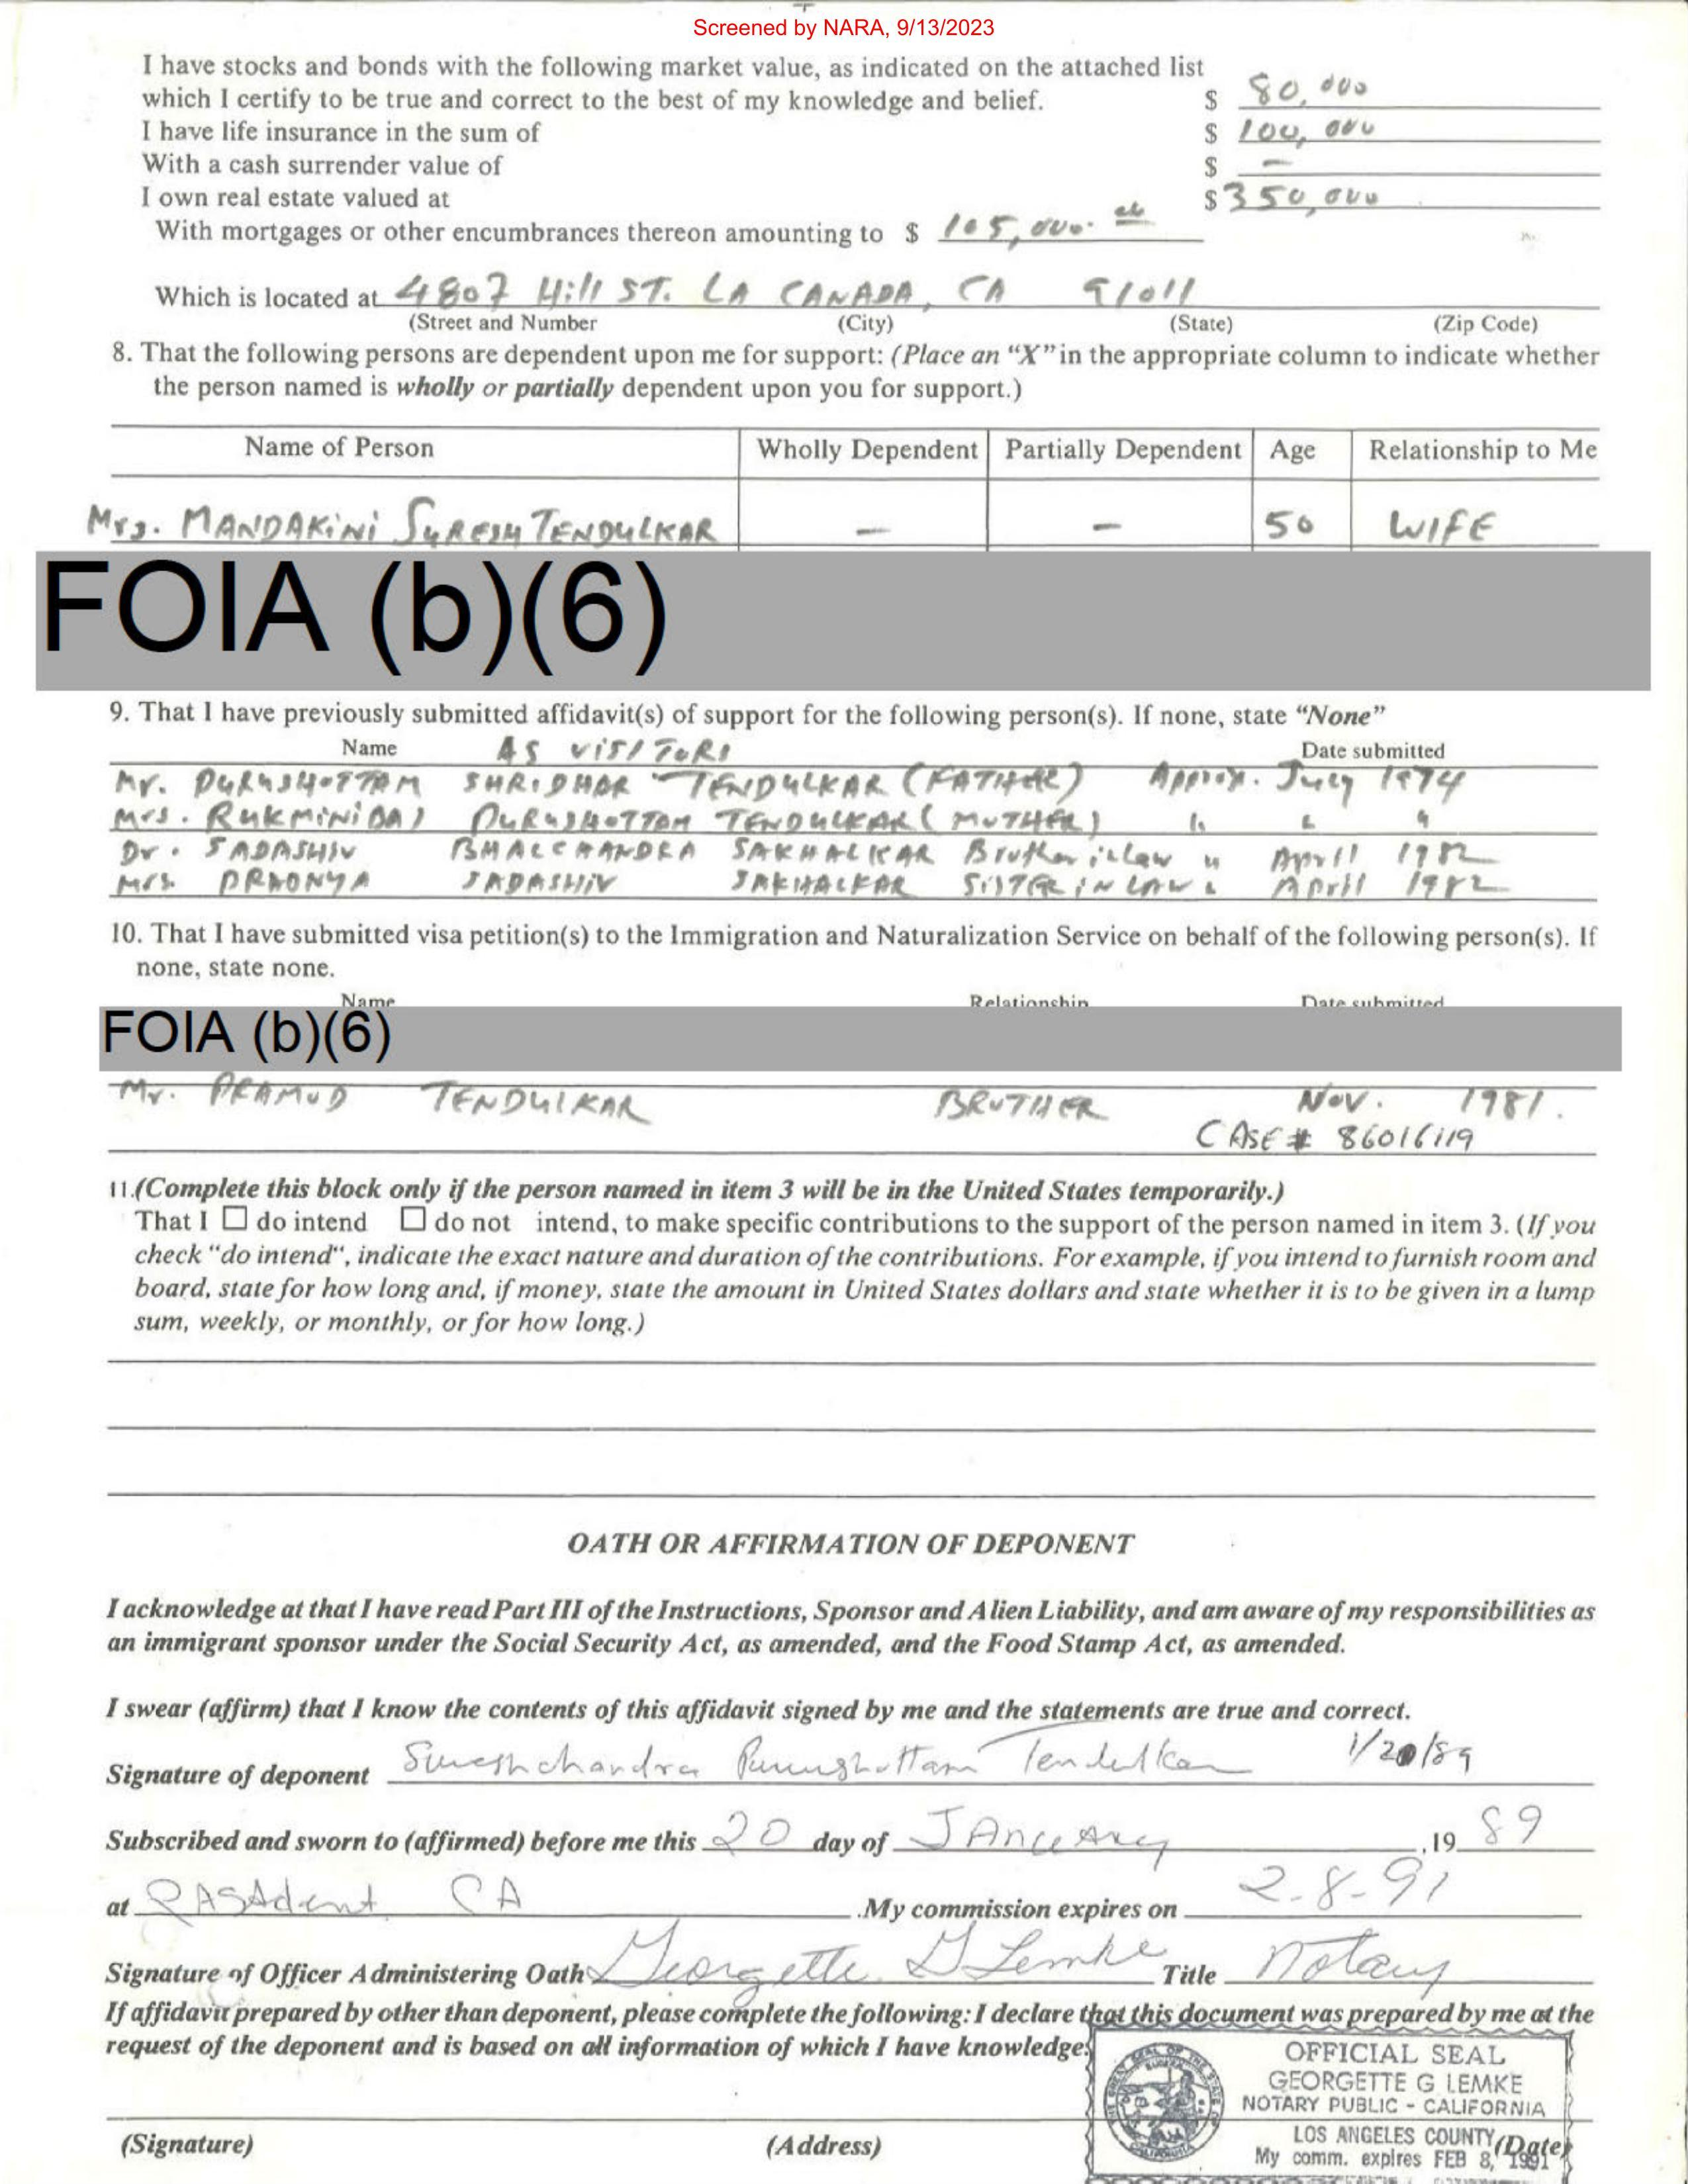 Screened by NARA, 9/13/2023
I have stocks and bonds with the following market value, as indicated on the attached list
which I certify to be true and correct to the best of my knowledge and belief. $ 80,000
I have life insurance in the sum of $ 100,000
With a cash surrender value of $ —
I own real estate valued at $ 350,000
With mortgages or other encumbrances thereon amounting to $ 105,000.
Which is located at 4807 Hill ST. LA CANADA, CA 91011
(Street and Number (City) (State) (Zip Code)
8. That the following persons are dependent upon me for support: (Place an “X” in the appropriate column to indicate whether
the person named is wholly or partially dependent upon you for support.)
Name of Person Wholly Dependent Partially Dependent Age Relationship to Me
Mrs. MANDAKiNi SURESH TENDULKAR — — 50 WIFE
FOIA (b)(6)
9. That I have previously submitted affidavit(s) of support for the following person(s). If none, state “None”
Name AS VISITORS Date submitted
Mr. PURUSHOTTAM SHRIDHAR TENDULKAR (FATHER) Approx. July 1974
Mrs. RUKMINIBAI PURUSHOTTAM TENDULKAR (MOTHER) " " "
Dr. SADASHIV BHALCHANDRA SAKHALKAR Brother in law " April 1982
Mrs. PRADNYA SADASHIV SAKHALKAR SISTER IN LAW " April 1982
10. That I have submitted visa petition(s) to the Immigration and Naturalization Service on behalf of the following person(s). If
none, state none.
Name Relationship Date submitted
FOIA (b)(6)
Mr. PRAMOD TENDULKAR BROTHER Nov. 1981.
CASE # 86016119
11.(Complete this block only if the person named in item 3 will be in the United States temporarily.)
That I ☐ do intend ☐ do not intend, to make specific contributions to the support of the person named in item 3. (If you
check “do intend“, indicate the exact nature and duration of the contributions. For example, if you intend to furnish room and
board, state for how long and, if money, state the amount in United States dollars and state whether it is to be given in a lump
sum, weekly, or monthly, or for how long.)
OATH OR AFFIRMATION OF DEPONENT
I acknowledge at that I have read Part III of the Instructions, Sponsor and Alien Liability, and am aware of my responsibilities as
an immigrant sponsor under the Social Security Act, as amended, and the Food Stamp Act, as amended.
I swear (affirm) that I know the contents of this affidavit signed by me and the statements are true and correct.
Signature of deponent Sureshchandra Purushottam Tendulkar 1/20/89
Subscribed and sworn to (affirmed) before me this 20 day of JAnuAry ,19 89
at PASAdena CA .My commission expires on 2-8-91
Signature of Officer Administering Oath Georgette G Lemke Title Notary
If affidavit prepared by other than deponent, please complete the following: I declare that this document was prepared by me at the
request of the deponent and is based on all information of which I have knowledge.
OFFICIAL SEAL
GEORGETTE G LEMKE
NOTARY PUBLIC - CALIFORNIA
LOS ANGELES COUNTY
My comm. expires FEB 8, 1991
(Signature) (Address) (Date)